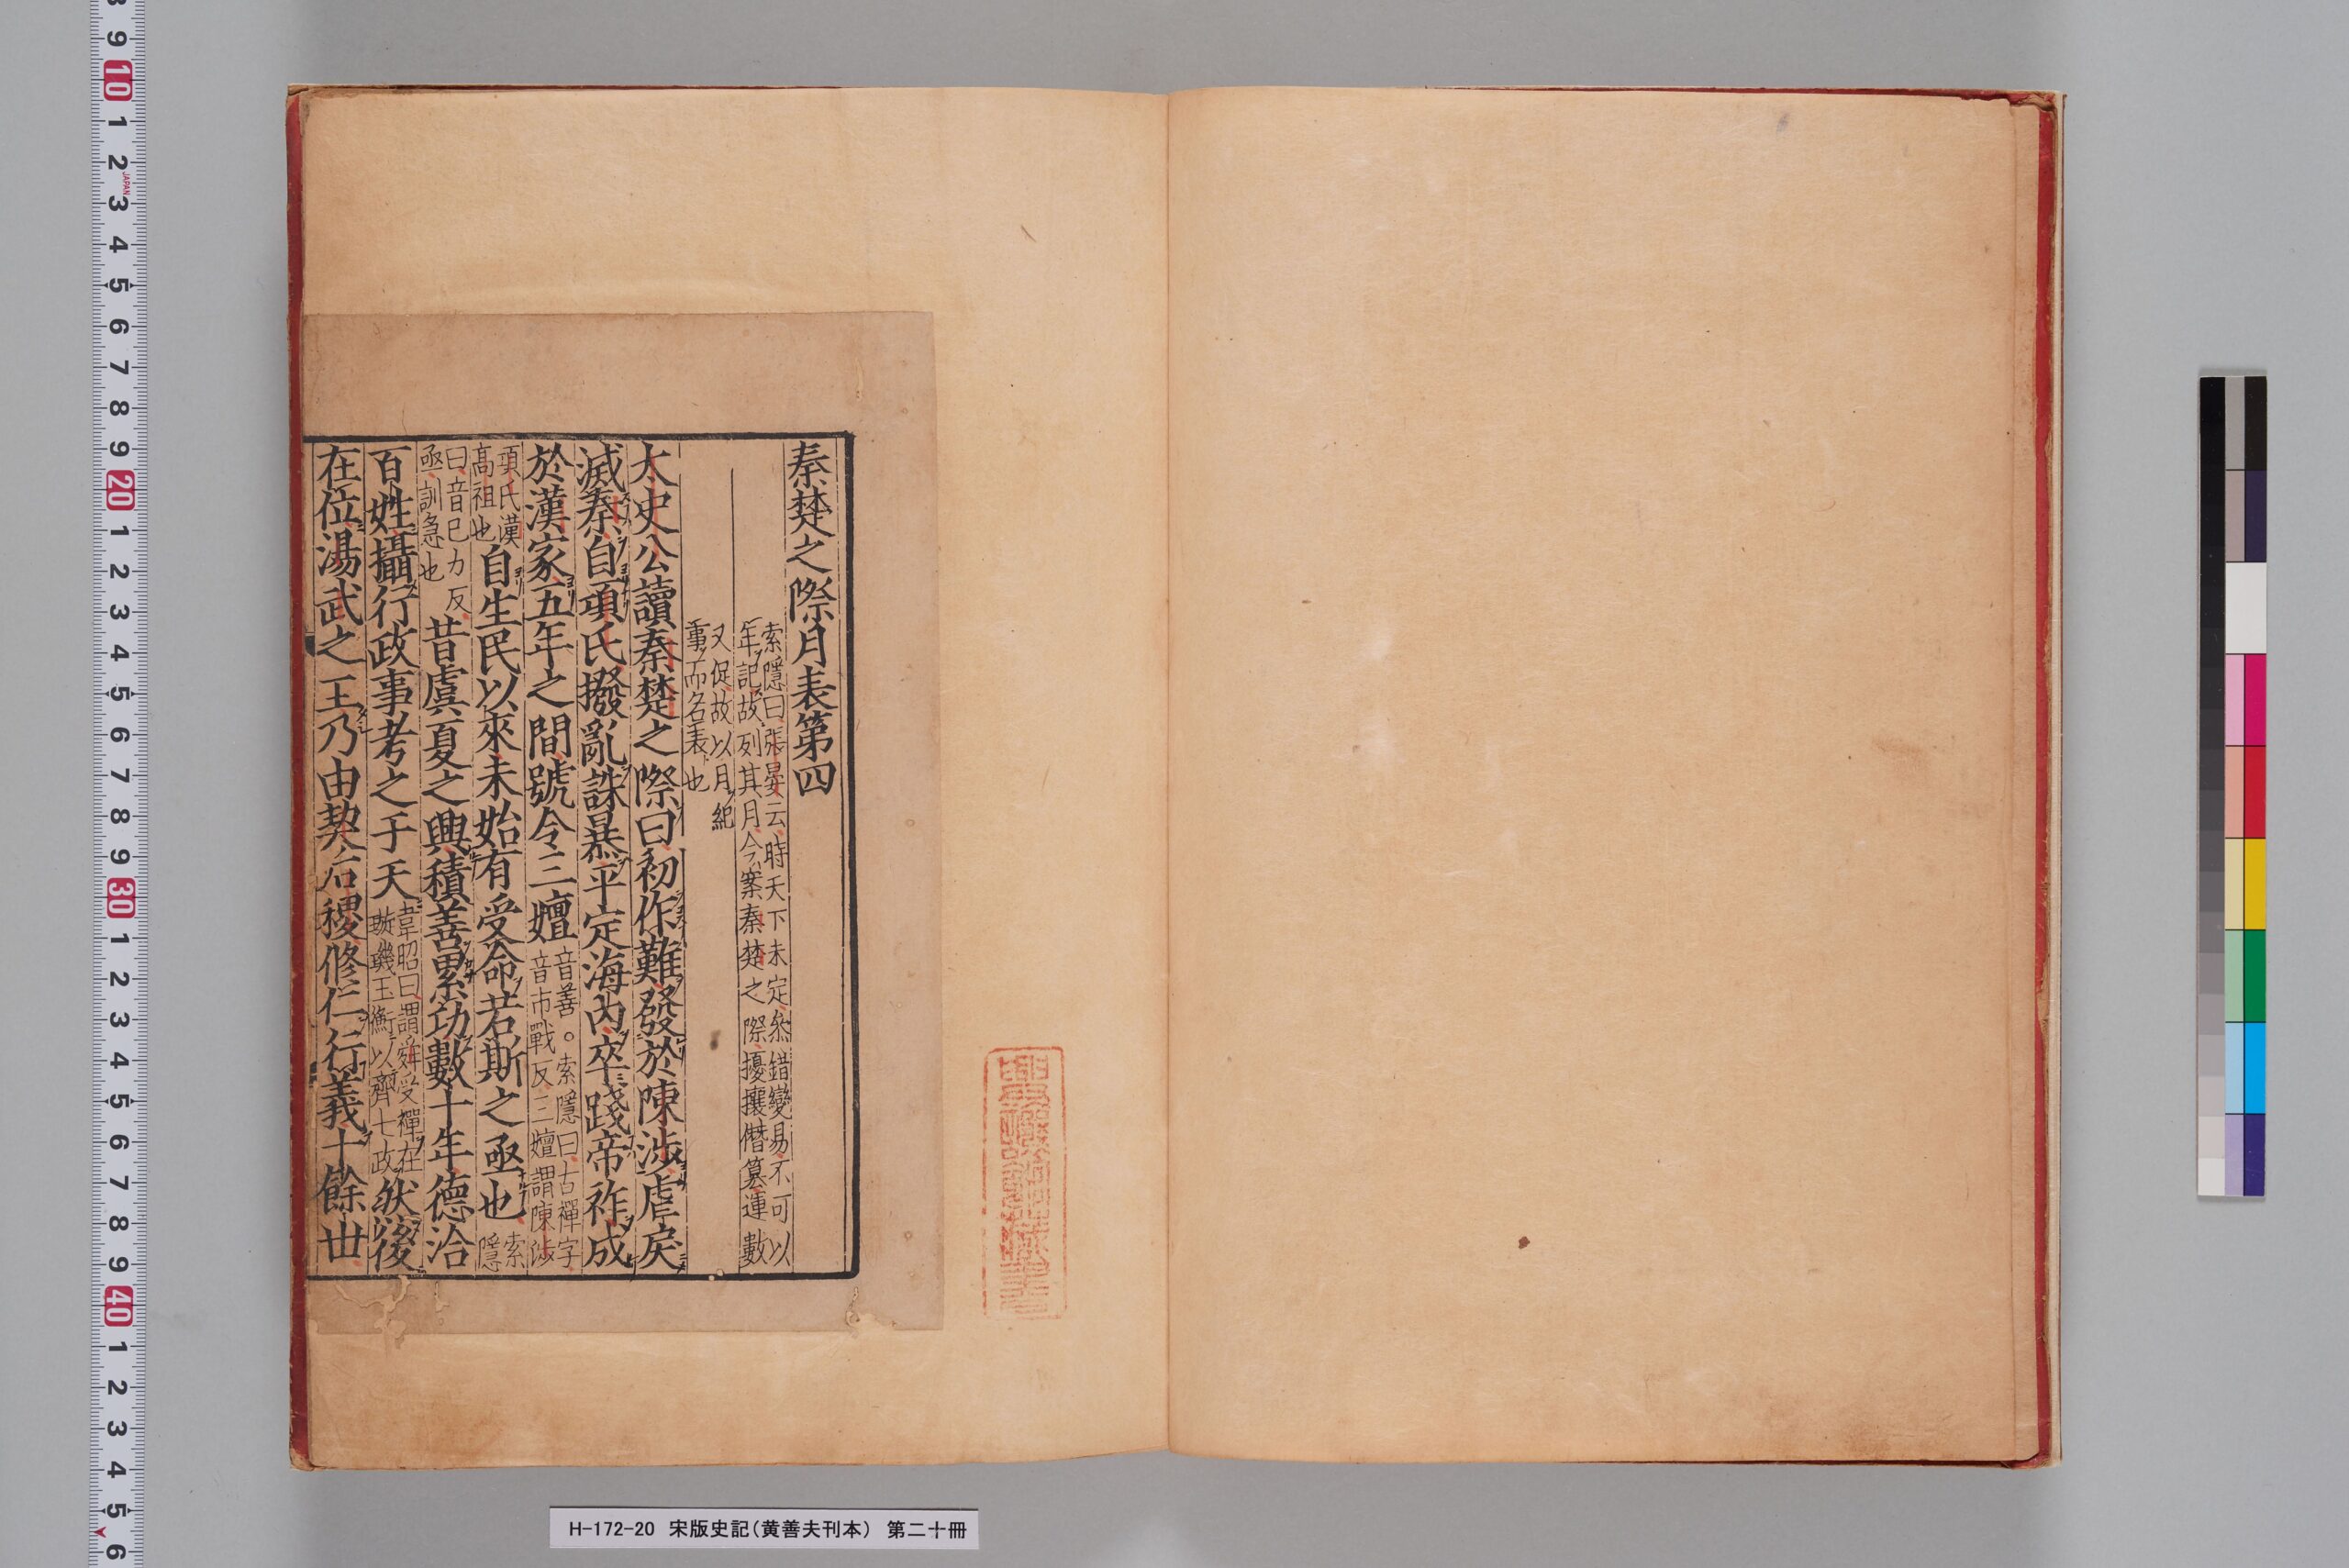 秦楚之際月表第四
索隱曰張晏云時天下未定叅錯變易不可以
年記故列其月今案秦楚之際擾攘僭篡運數
又促故以月紀
事而名表也
太史公讀秦楚之際曰初作難發於陳涉虐戾
滅秦自項氏撥亂誅暴平定海內卒踐帝祚成
於漢家五年之間號令三嬗
音善。索隱曰古禪字
音市戰反三嬗謂陳涉
項氏漢
高祖也
自生民以來未始有受命若斯之亟也
索
隱
曰音己力反
亟訓急也
昔虞夏之興積善累功數十年德洽
百姓攝行政事考之于天
韋昭曰謂舜受禪在
璇璣玉衡以齊七政
然後
在位湯武之王乃由契后稷修仁行義十餘世
H-172-20 宋版史記(黄善夫刊本) 第二十冊
JAPAN